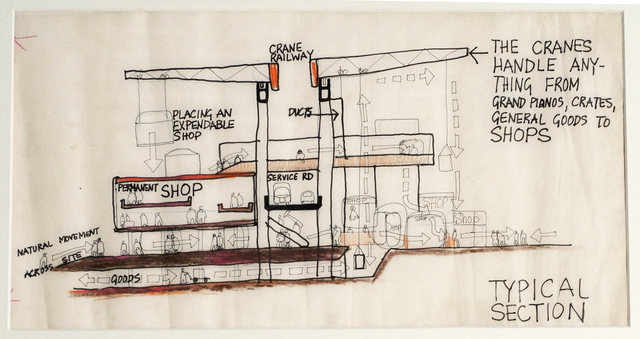 CRANE
RAILWAY
THE CRANES
HANDLE ANY-
THING FROM
GRAND PIANOS, CRATES,
GENERAL GOODS TO
SHOPS
PLACING AN
EXPENDABLE
SHOP
DUCTS
PERMANENT SHOP
SERVICE RD
SHOP
SHOP
NATURAL MOVEMENT
ACROSS SITE
GOODS
TYPICAL
SECTION